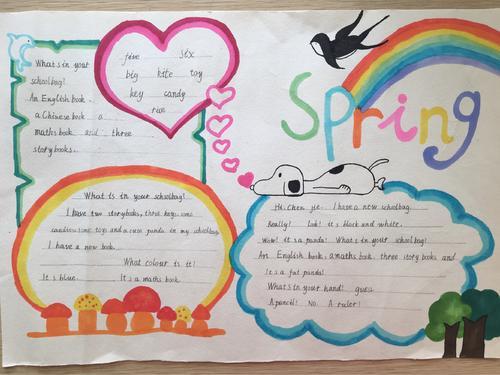 What's in your
schoolbag?
An English book.
a Chinese book a
maths book and three
storybooks.
five six
big kite toy
key candy
rice
Spring
What is in your schoolbag?
I have two storybooks, three keys, some
candies, some toys and a cute panda in my schoolbag.
I have a new book.
What colour is it?
It's blue. It's a maths book.
Hi, Chen Jie. I have a new schoolbag.
Really? Look! it's black and white.
Wow! it's a panda! What's in your schoolbag?
An English book, a maths book, three story books and
It's a fat panda!
What's in your hand? guess
A pencil? No. A ruler?